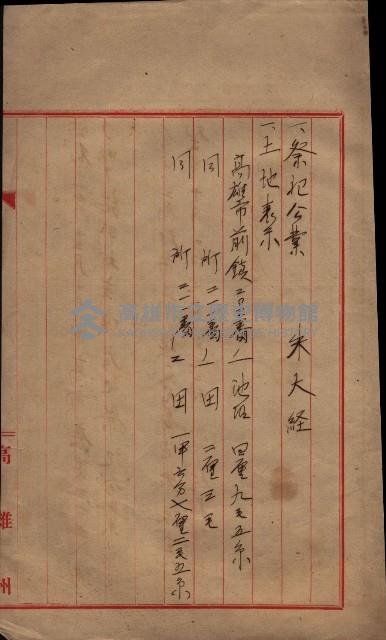 一、祭祀公業　朱大経
一、土地表示
高雄市前鎮二〇番ノ一　池沼　四厘九毛五糸
同　所　二一番ノ一　田　二厘三毛
同　所　二一番ノ二　田　一甲六分七厘二毛五糸
高雄州
高雄市立歷史博物館